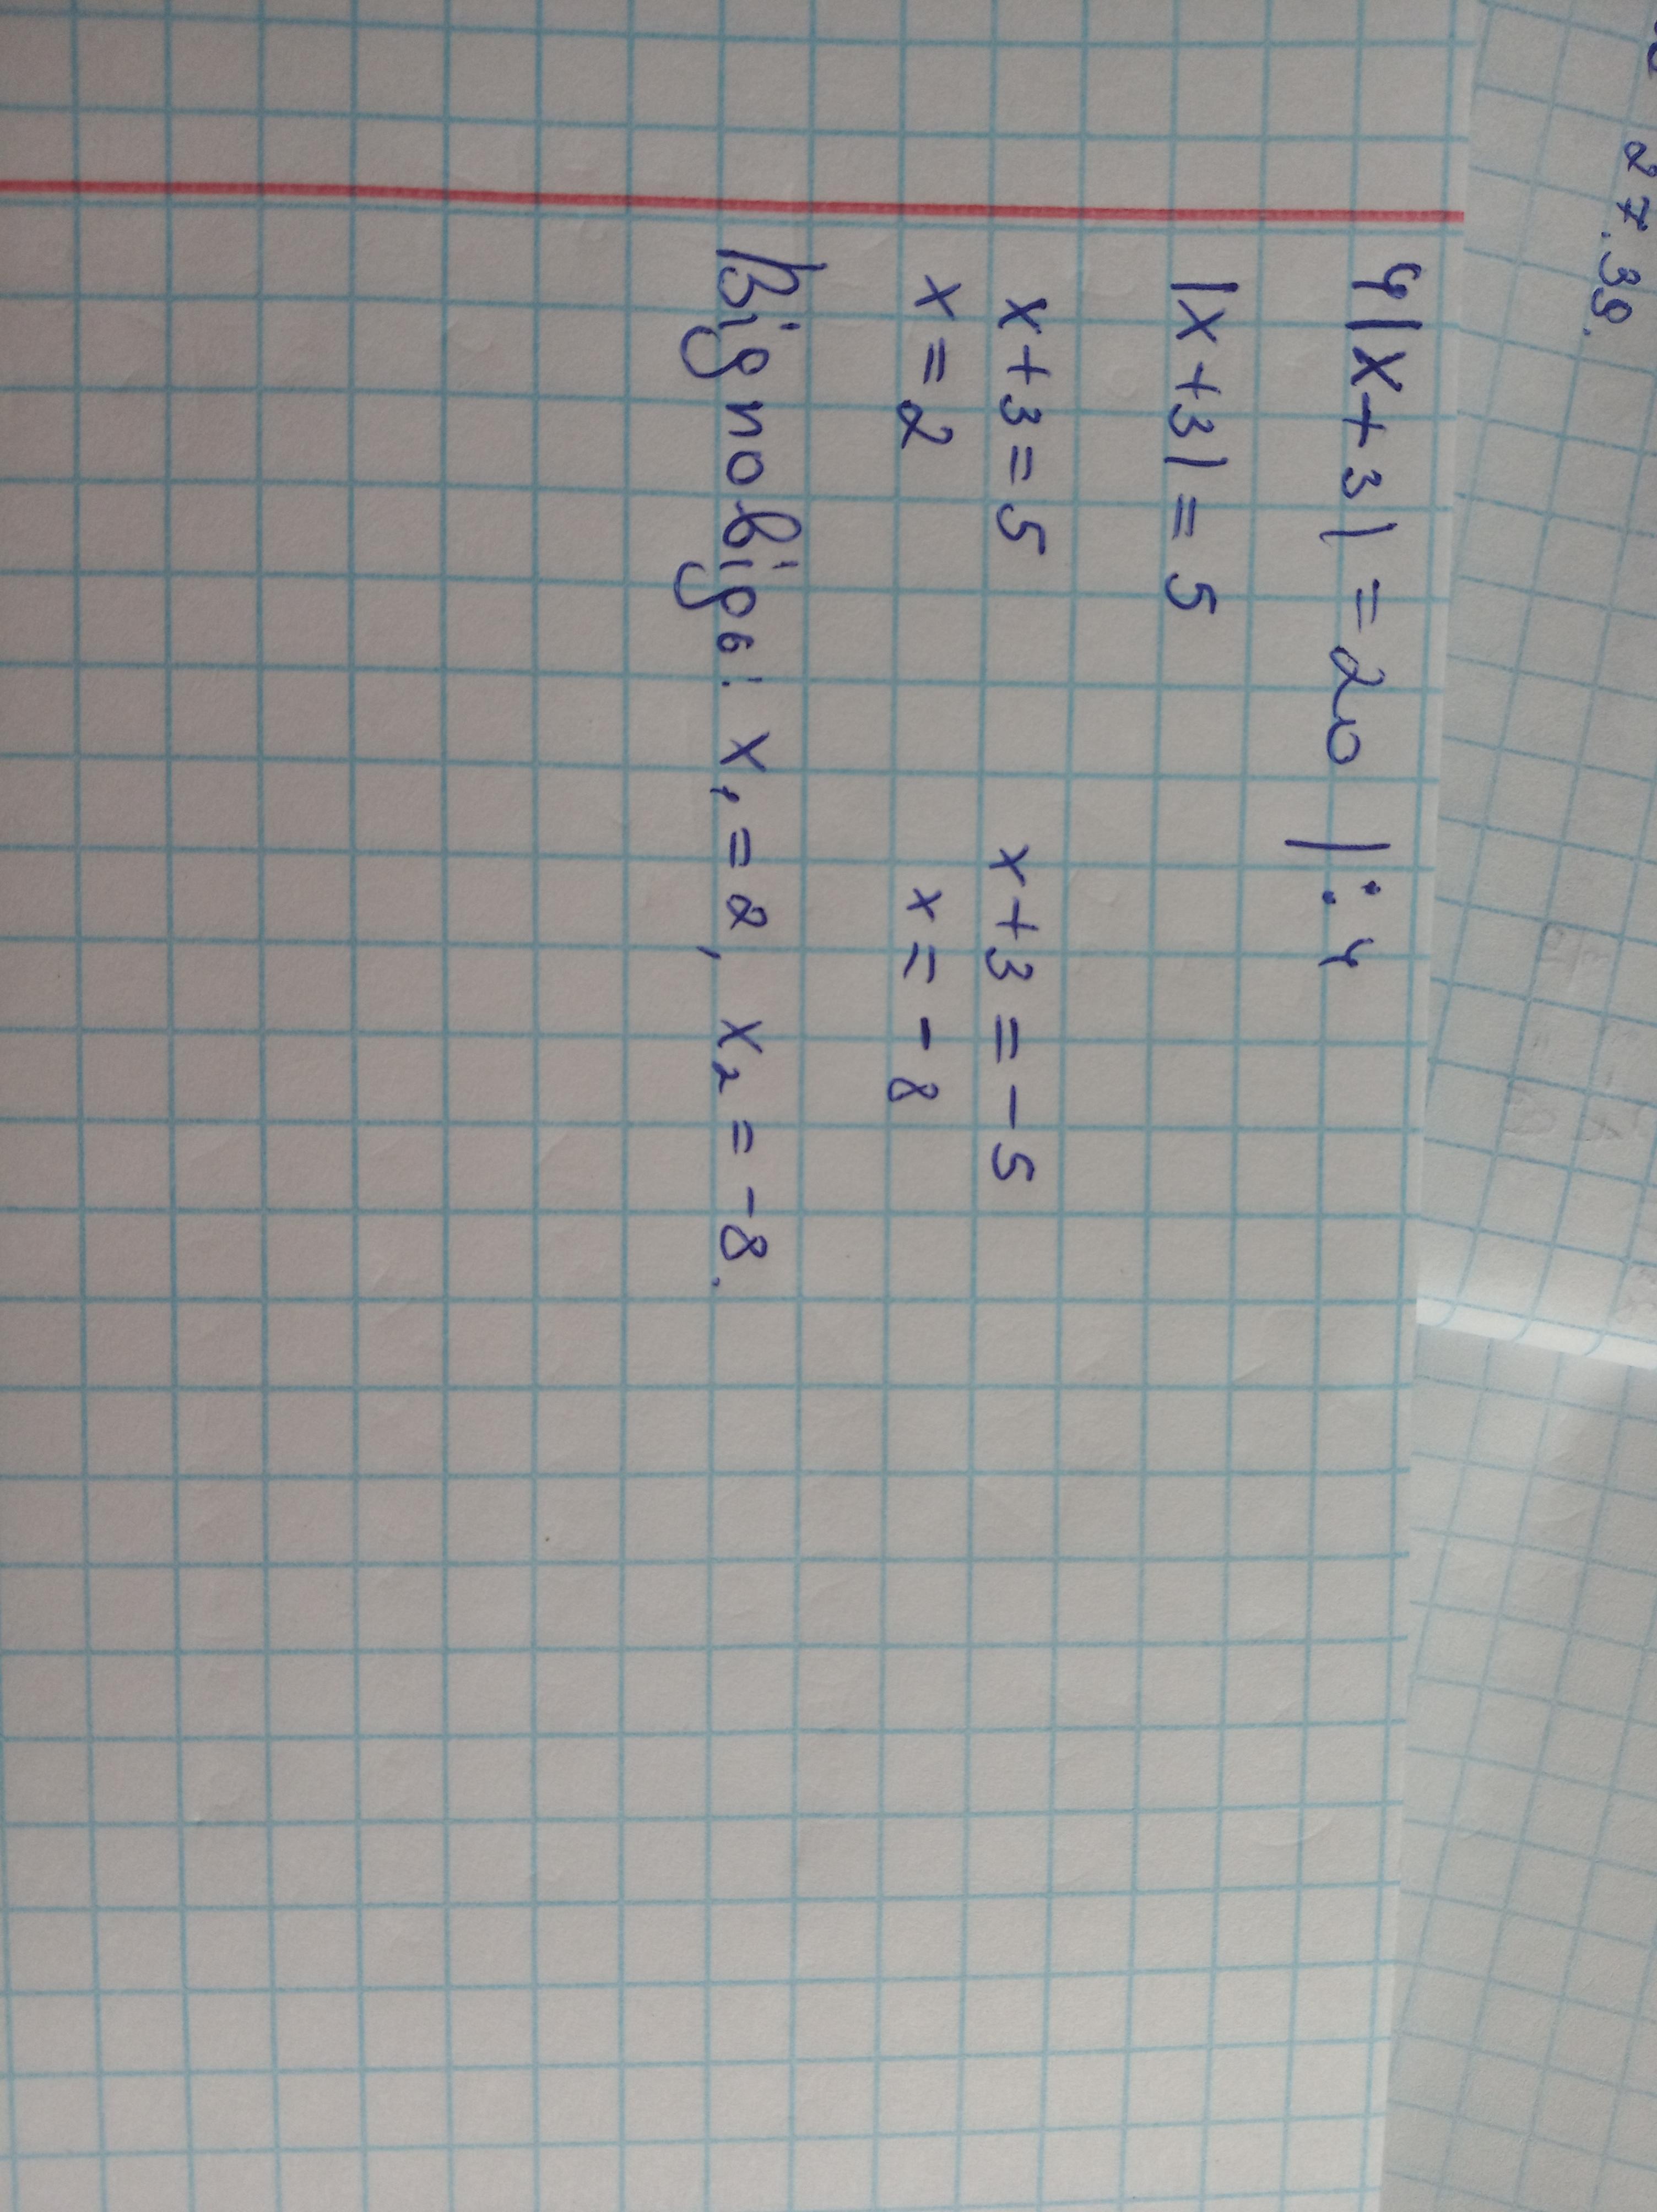 27.39.
4|x+3| = 20 |:4
|x+3| = 5
x+3=5 x+3=-5
x=2 x=-8
Відповідь: x₁=2, x₂=-8.